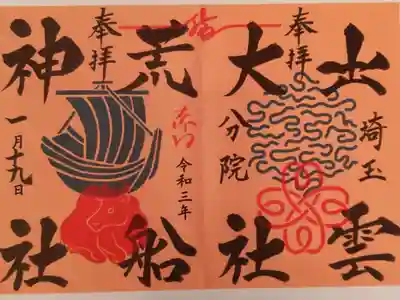 奉拝
出雲
大社
埼玉
分院
詣
奉拝
荒船
神社
令和三年
一月十九日